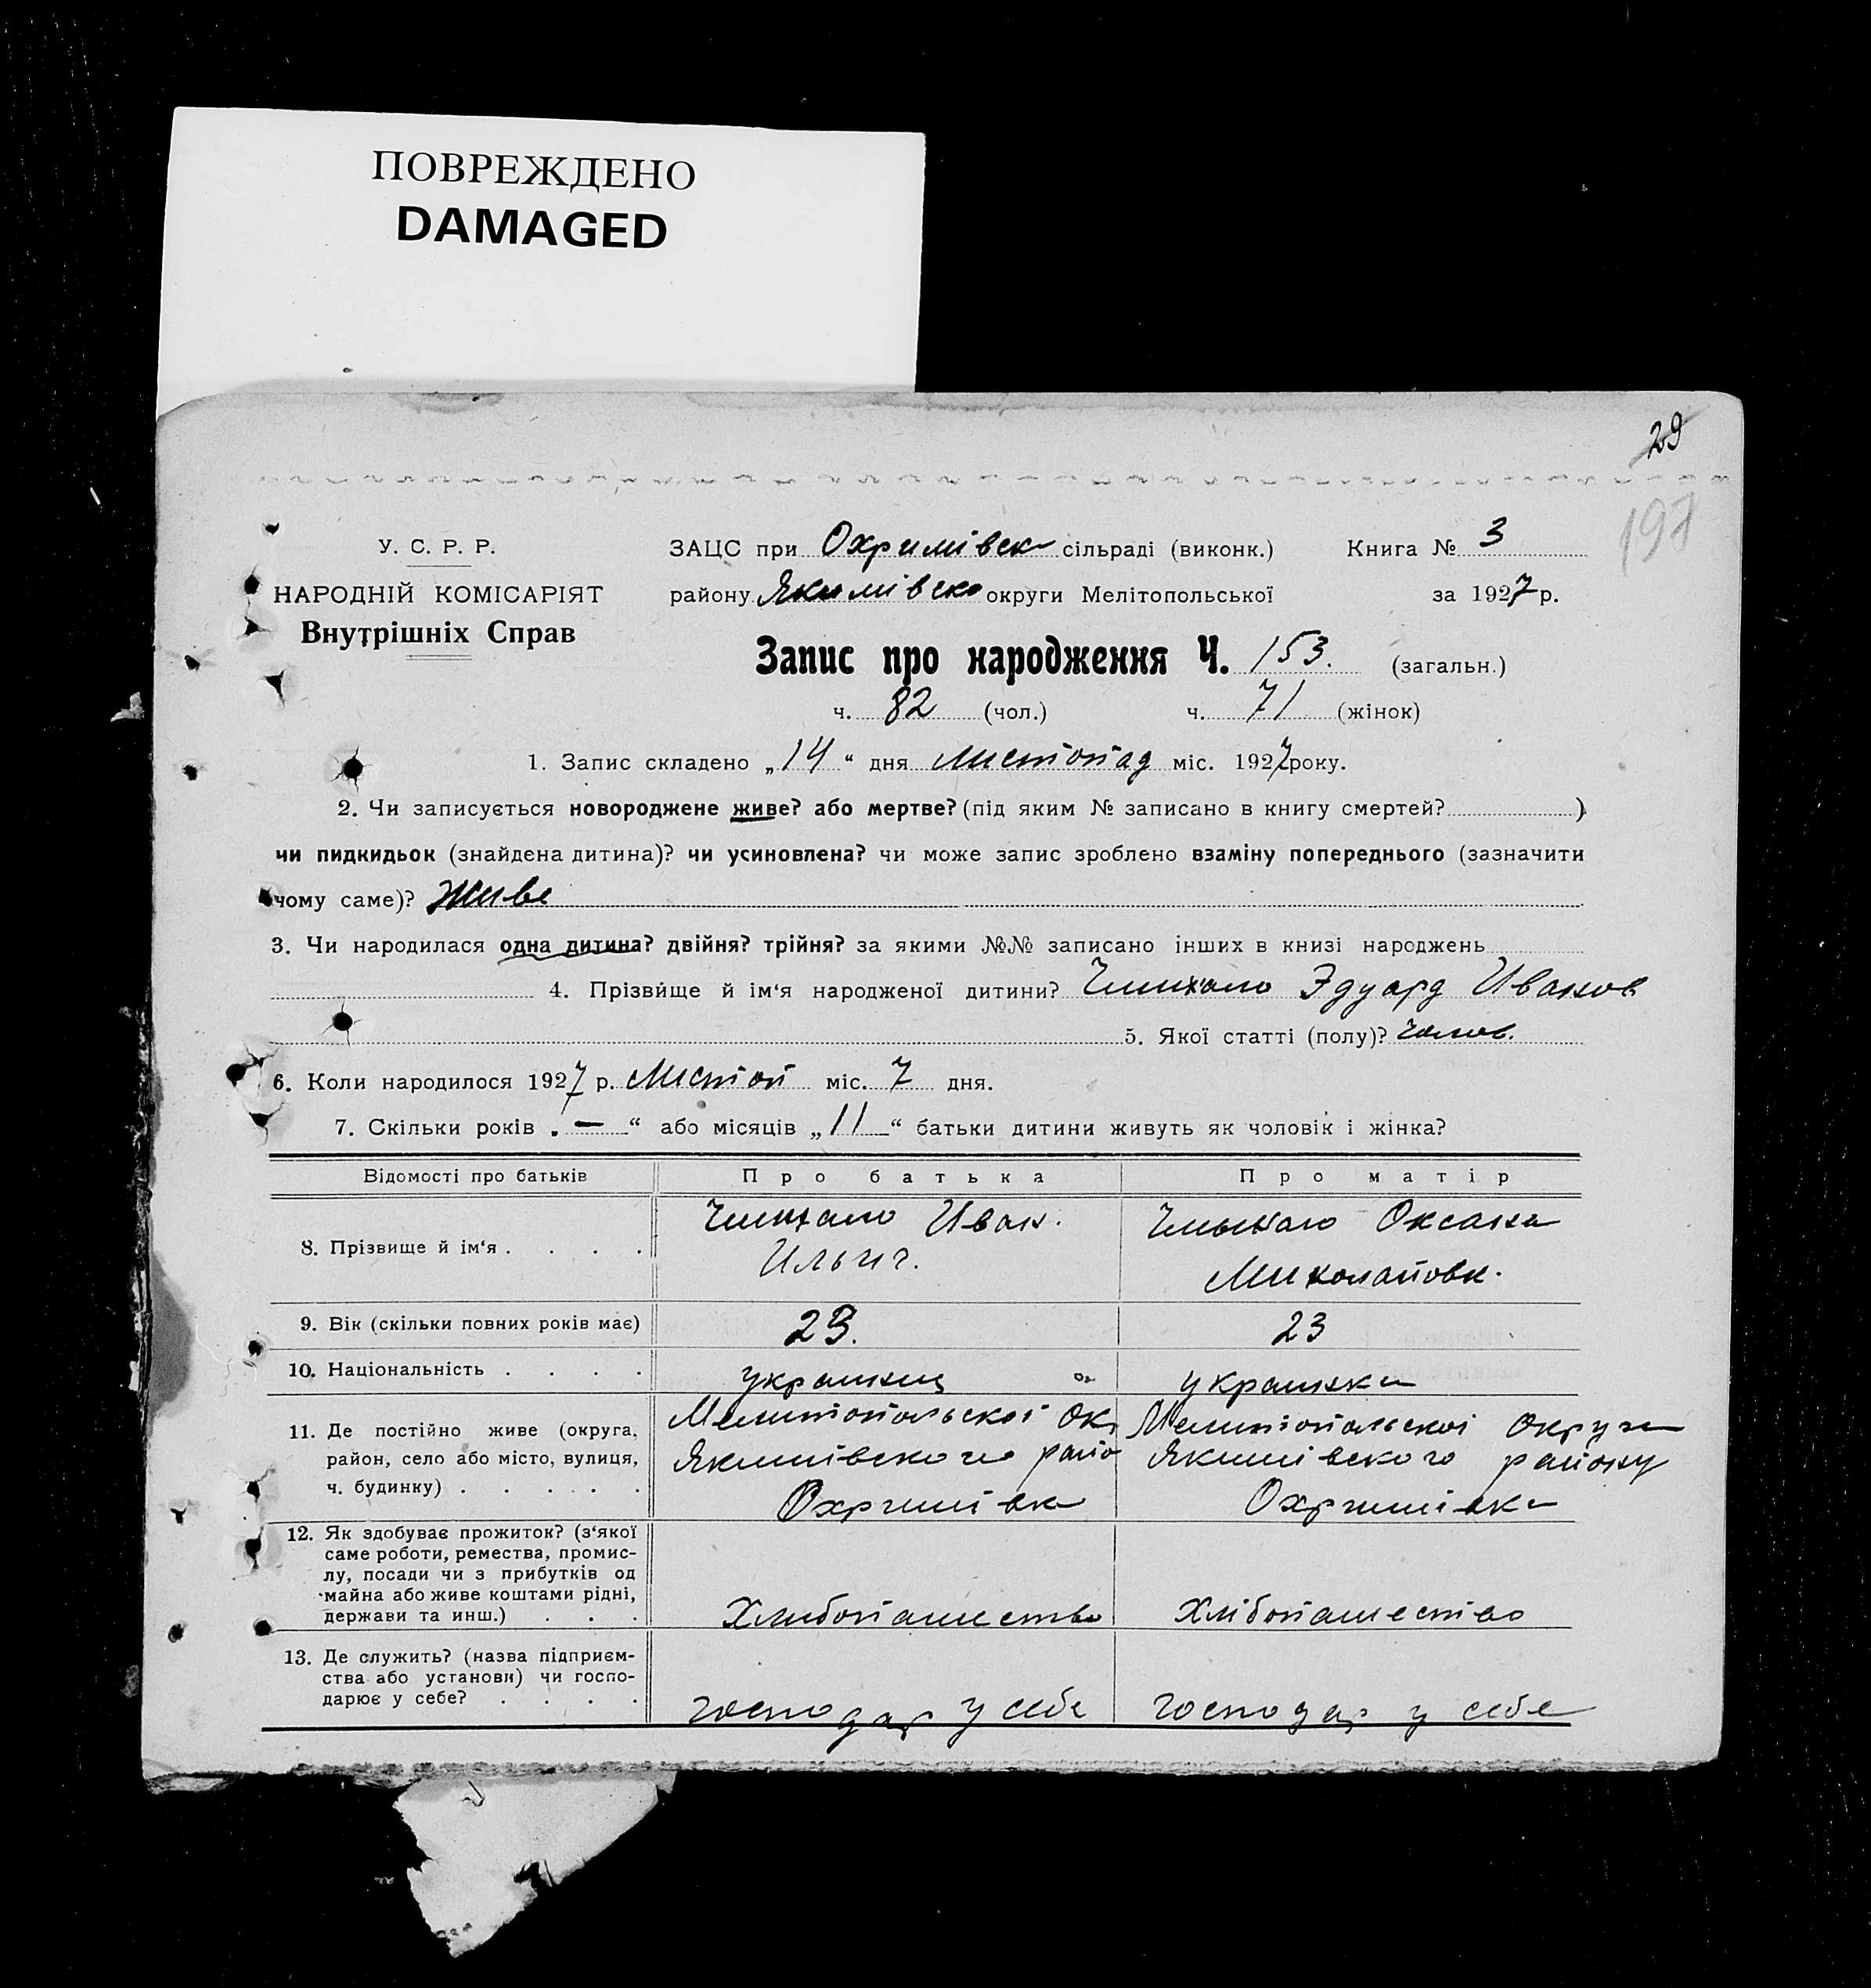 ПОВРЕЖДЕНО
DAMAGED
29
197
У. С. Р. Р.
НАРОДНІЙ КОМІСАРІЯТ
Внутрішніх Справ
ЗАЦС при Охримівск сільраді (виконк.) Книга № 3
району Якимівско округи Мелітопольської за 1927 р.
Запис про народження Ч. 153. (загальн.)
ч. 82 (чол.) ч. 71 (жінок)
1. Запис складено „14“ дня Листопад міс. 1927 року.
2. Чи записується новороджене живе? або мертве? (під яким № записано в книгу смертей? )
чи пидкидьок (знайдена дитина)? чи усиновлена? чи може запис зроблено взаміну попереднього (зазначити
чому саме)? Живе
3. Чи народилася одна дитина? двійня? трійня? за якими №№ записано інших в книзі народжень
4. Прізвище й ім‘я народженої дитини? Эдуард Иванов
5. Якої статті (полу)? чолов.
6. Коли народилося 1927 р. Листоп міс. 7 дня.
7. Скільки років „—“ або місяців „11“ батьки дитини живуть як чоловік і жінка?
Відомості про батьків Про батька Про матір
8. Прізвище й ім‘я . . . . Иван. Оксана
Ильич. Миколаповн.
9. Вік (скільки повних років має) 23. 23
10. Національність . . . . украинец украинка
11. Де постійно живе (округа, Мелитопольскоі Ок, Мелитопольскоі округи
район, село або місто, вулиця, Якимівского райо Якимівского району
ч. будинку) . . . . . Охримівка Охримівка
12. Як здобуває прожиток? (з‘якої
саме роботи, ремества, промис-
лу, посади чи з прибутків од
майна або живе коштами рідні,
держави та инш.) . . . Хлибопашество Хлібопашество
13. Де служить? (назва підприєм-
ства або установи) чи госпо-
дарює у себе? . . . . господар у себе господар у себе